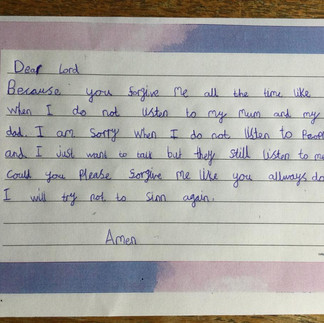 Dear Lord
Because you forgive me all the time like
when I do not listen to my mum and my
dad. I am sorry when I do not listen to
and I just want to talk but they still listen to me
Could you please forgive me like you allways do
I will try not to sinn again.
Amen